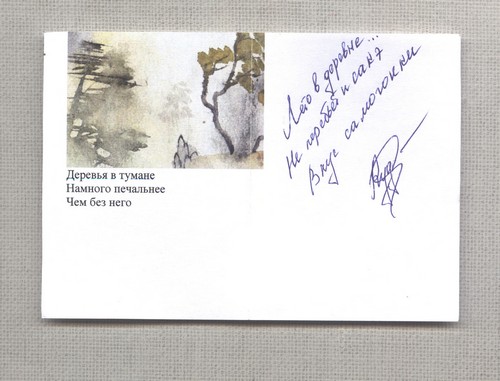 Деревья в тумане
Намного печальнее
Чем без него
Лето в деревне...
Не перебьёт и сакэ
Вкус самогонки